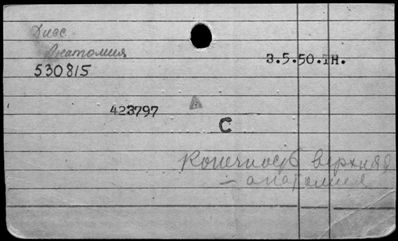 Дисс
Анатомия
530815
3.5.50.IH.
423797
А
С
Конечность верхняя
– анатомия